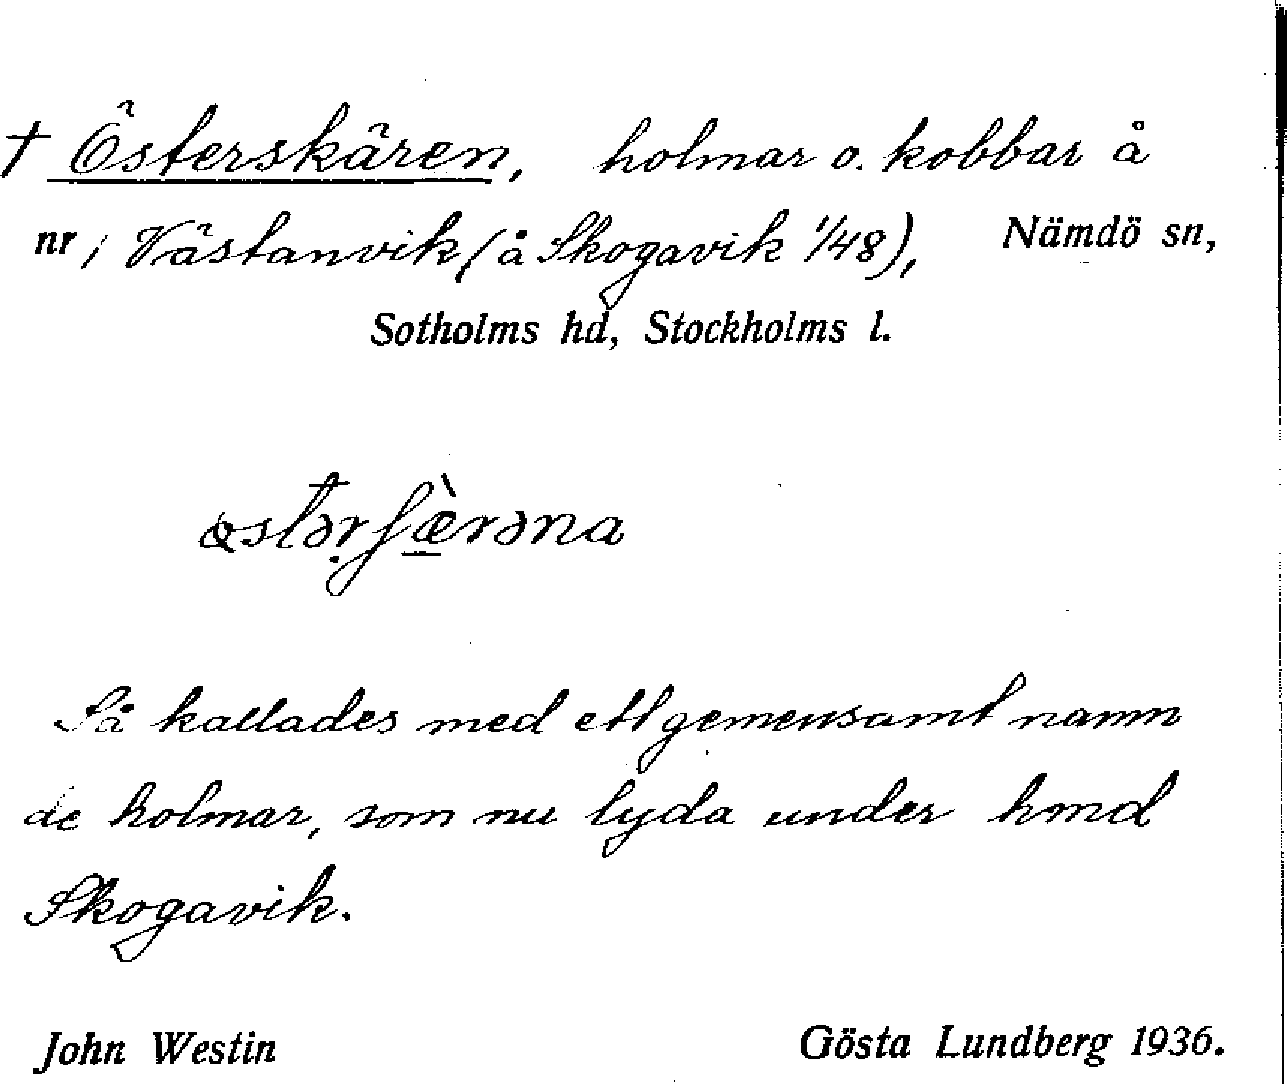 † Österskären, holmar o. kobbar å
nr 1 Västanvik (å Skogavik 1/48), Nämdö sn,
Sotholms hd, Stockholms l.
østərʃæ̀rəna
Så kallades med ett gemensamt namn
de holmar, som nu lyda under hmd
Skogavik.
John Westin Gösta Lundberg 1936.